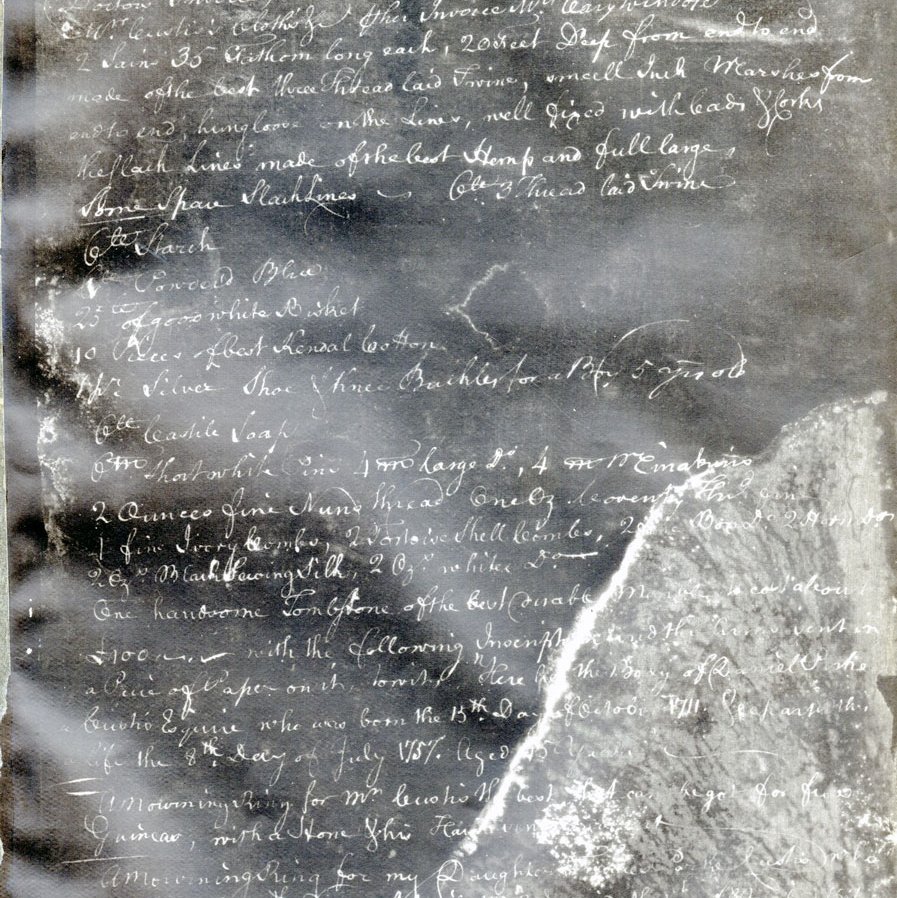 Mrs Custis's Cloths &c ⅌ her Invoice Mrs Cary wrote
2 Sains 35 Fathom long each, 20 feet Deep from end to end
made of the best three Thread laid Twine, small Inch Marshes from
end to end, hung loose on the Lines, well fixed with leads & Corks
the slack Lines made of the best Hemp and full large,
Some Spare Slack Lines 6lb 3 Thread laid Twine
6lb Starch
Powderd Blue
25lb of good white Bisket
10 Pieces of best Kendal Cotton
1 pr Silver Shoe & Knee Buckles for a Boy 5 yrs old
6lb Castile Soap
6m Short white Pins 4m Large Do, 4m Minakins
2 Ounces fine Nuns thread One Oz
1 fine Ivory Combs, 2 Tortoise Shell Combs, 2 Box Do 2 Horn Do
2 Ozs Black Sewing Silk, 2 Ozs white Do
One handsome Tombstone of the best Durable Marble to cost about
£100 with the following Inscription and the Arms sent in
a Piece of Paper on it, to wit, Here lies the Body of Daniel Parke
Custis Esquire who was born the 15th Day of Octobr 1711. & departed this
life the 8th Day of July 1757. Aged 45 Years
A Mourning Ring for Mrs Custis the best that can be got for five
Guineas, with a Stone & his Hair
A Mourning Ring for my Daughter